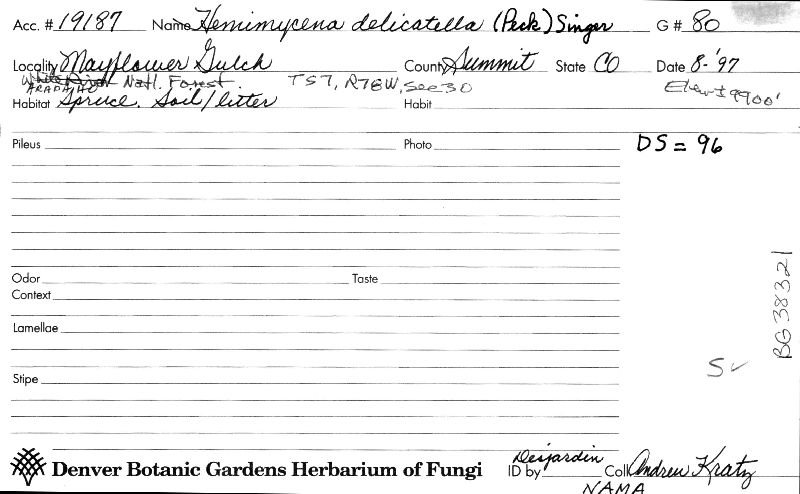 Acc. # 19187 Name Hemimycena delicatella (Peck) Singer G # 80
Locality Mayflower Gulch County Summit State CO Date 8-'97
White River Natl. Forest TS7, R78W, Sec 30 Elev ± 9900'
ARAPAHO
Habitat Spruce. Soil/litter Habit
Pileus Photo DS = 96
Odor Taste
Context
BG38321
Lamellae
S✓
Stipe
Denver Botanic Gardens Herbarium of Fungi ID by Desjardin Coll Andrew Kratz
NAMA